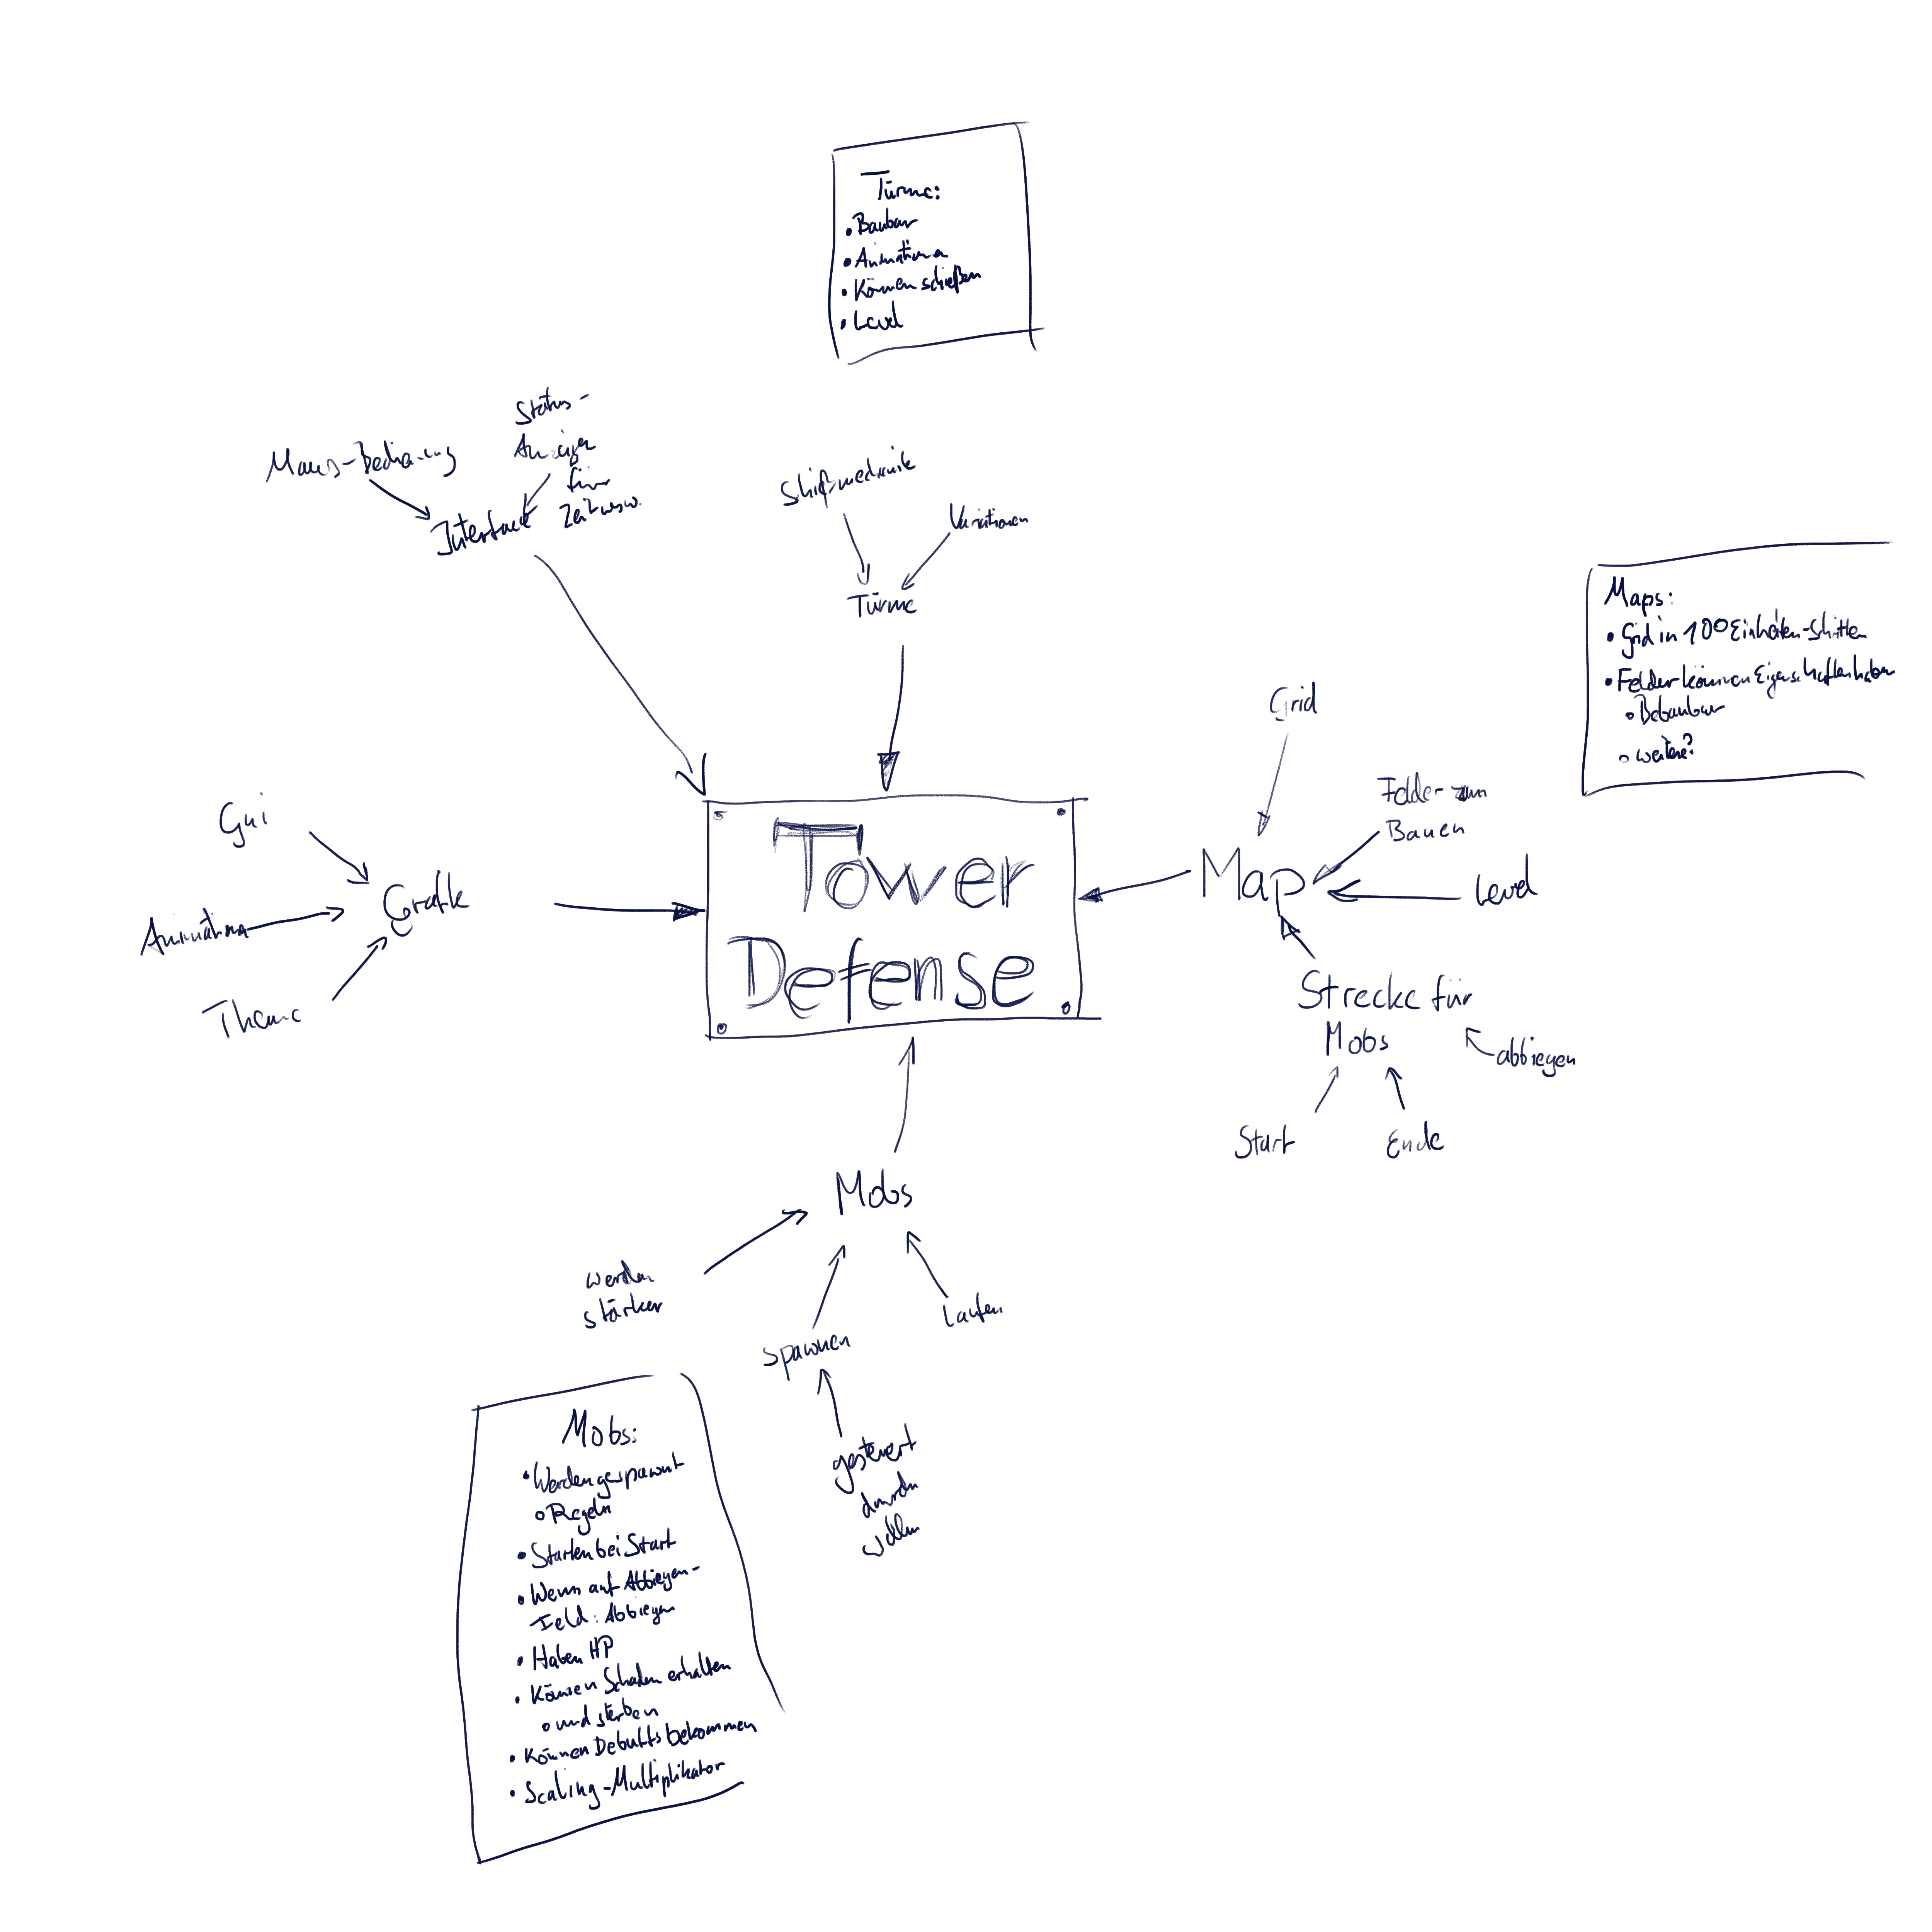 Türme:
• Baubar
• Animationen
• Können schießen
• Level
Status-
Anzeigen
für
Zeit usw.
Maus-Bedienung
Interface
Variationen
Türme
Maps:
• Grid in 100 Einheiten-Schritten
• Felder können Eigenschaften haben
○ Bebaubar
○ weitere?
Grid
Felder zum
Bauen
Map
Level
Strecke für
Mobs
abbiegen
Start
Ende
Gui
Grafik
Animation
Theme
Tower
Defense
Mobs
werden
stärker
Spawnen
Laufen
gesteuert
durch
Wellen
Mobs:
• Werden gespawnt
○ Regeln
• Starten bei Start
• Wenn auf Abbiegen-
Feld: Abbiegen
• Haben HP
• Können Schaden erhalten
○ und sterben
• Können Debuffs bekommen
• Scaling-Multiplikator